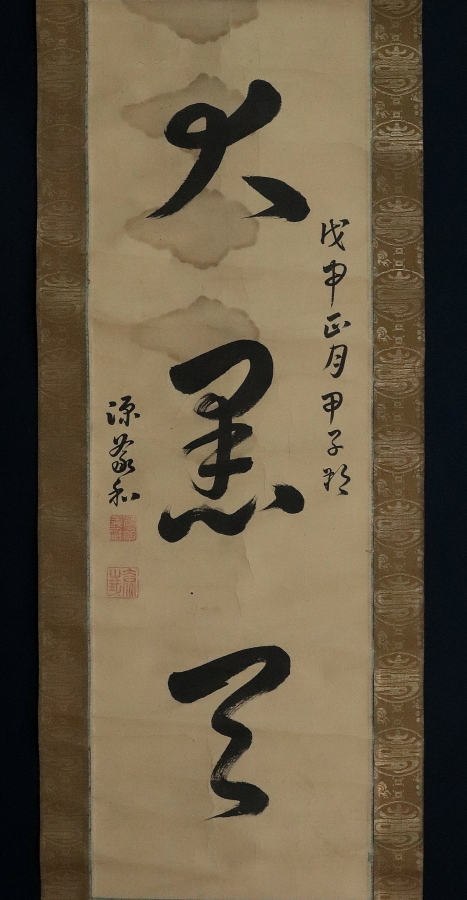 戊申正月甲子朝
大黒天
源義和